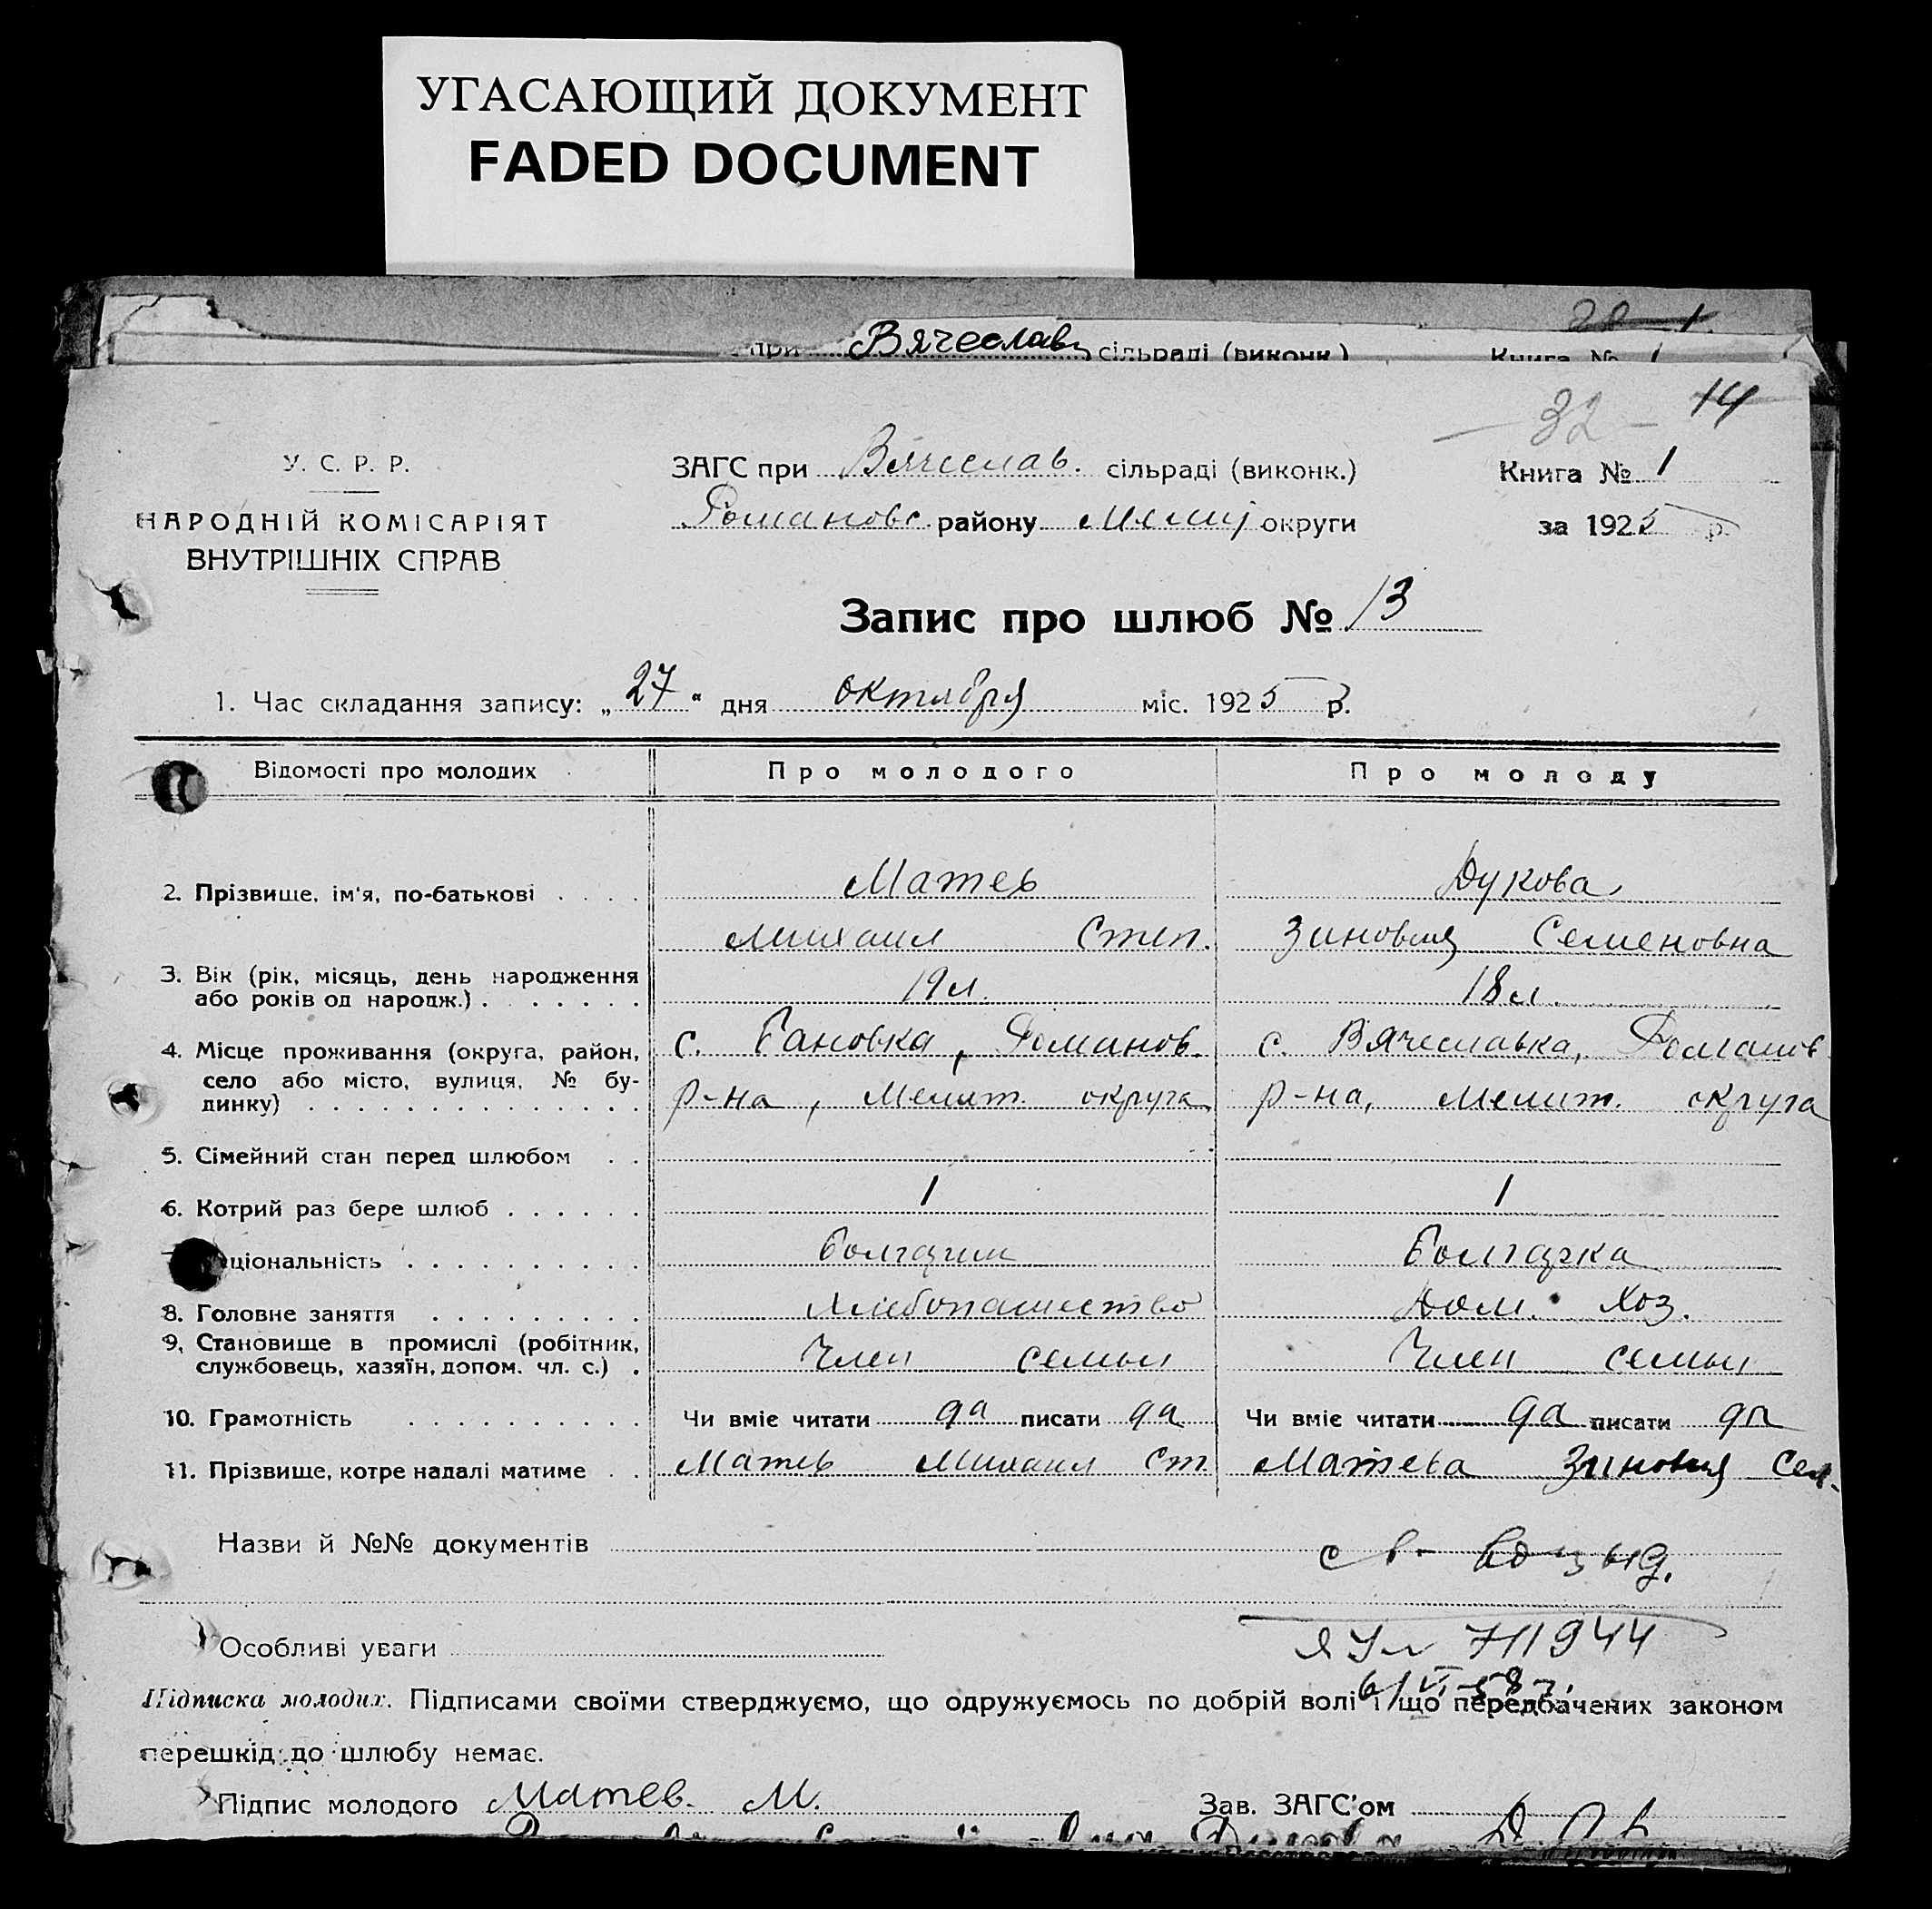 УГАСАЮЩИЙ ДОКУМЕНТ
FADED DOCUMENT
при Вячеславц сільраді (виконк.) Книга № 1
32 - 14
У. С. Р. Р.
НАРОДНІЙ КОМІСАРІЯТ
ВНУТРІШНІХ СПРАВ
ЗАГС при Вячеслав. сільраді (виконк.)
Романовс. району Мелит округи
Книга № 1
за 1925 р.
Запис про шлюб № 13
1. Час складання запису: „27“ дня октября міс. 1925 р.
Відомості про молодих Про молодого Про молоду
2. Прізвище, ім'я, по-батькові Матев Дукова
Михаил Степ. Зиновия Семеновна
3. Вік (рік, місяць, день народження
або років од народж.) 19 л. 18 л.
4. Місце проживання (округа, район, с. Бановка, Романов. с. Вячеславка, Романов
село або місто, вулиця, № бу-
динку) р-на, Мелит. округа р-на, Мелит. округа
5. Сімейний стан перед шлюбом
6. Котрий раз бере шлюб 1 1
ціональність болгарин болгарка
8. Головне заняття хлебопашество Дом. хоз.
9. Становище в промислі (робітник,
службовець, хазяїн, допом. чл. с.) Член семьи Член семьи
10. Грамотність Чи вміє читати да писати да Чи вміє читати да писати да
11. Прізвище, котре надалі матиме Матев Михаил Ст. Матева Зиновия Сем.
Назви й №№ документів
Особливі уваги
Підписка молодих. Підписами своїми стверджуємо, що одружуємось по добрій волі і що передбачених законом
перешкід до шлюбу немає.
Підпис молодого Матев. М. Зав. ЗАГС'ом